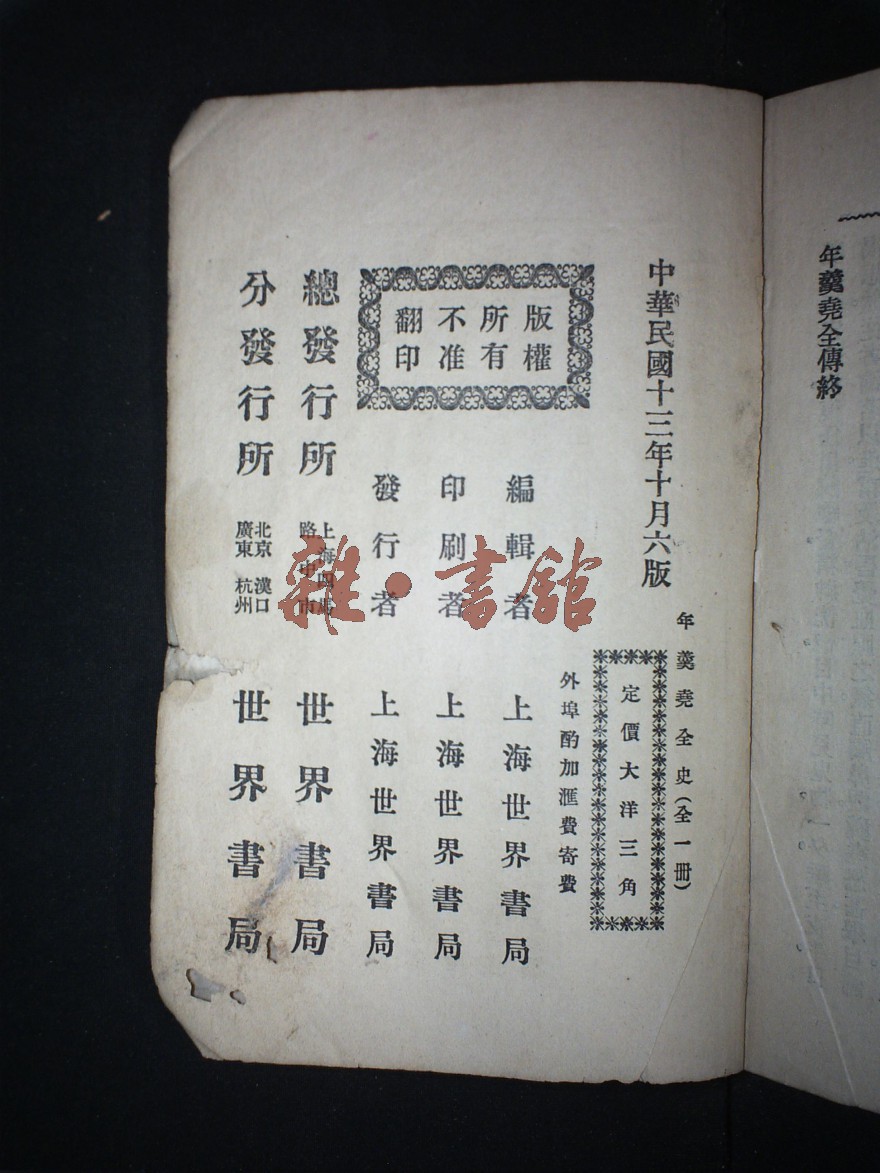 年羹堯全傳終
中華民國十三年十月六版
年羹堯全史(全一冊)
定價大洋三角
外埠酌加滙費寄費
版權
所有
不准
翻印
編輯者 上海世界書局
印刷者 上海世界書局
發行者 上海世界書局
總發行所 上海四馬路中市 世界書局
分發行所 北京 漢口 廣東 杭州 世界書局
雜·書館